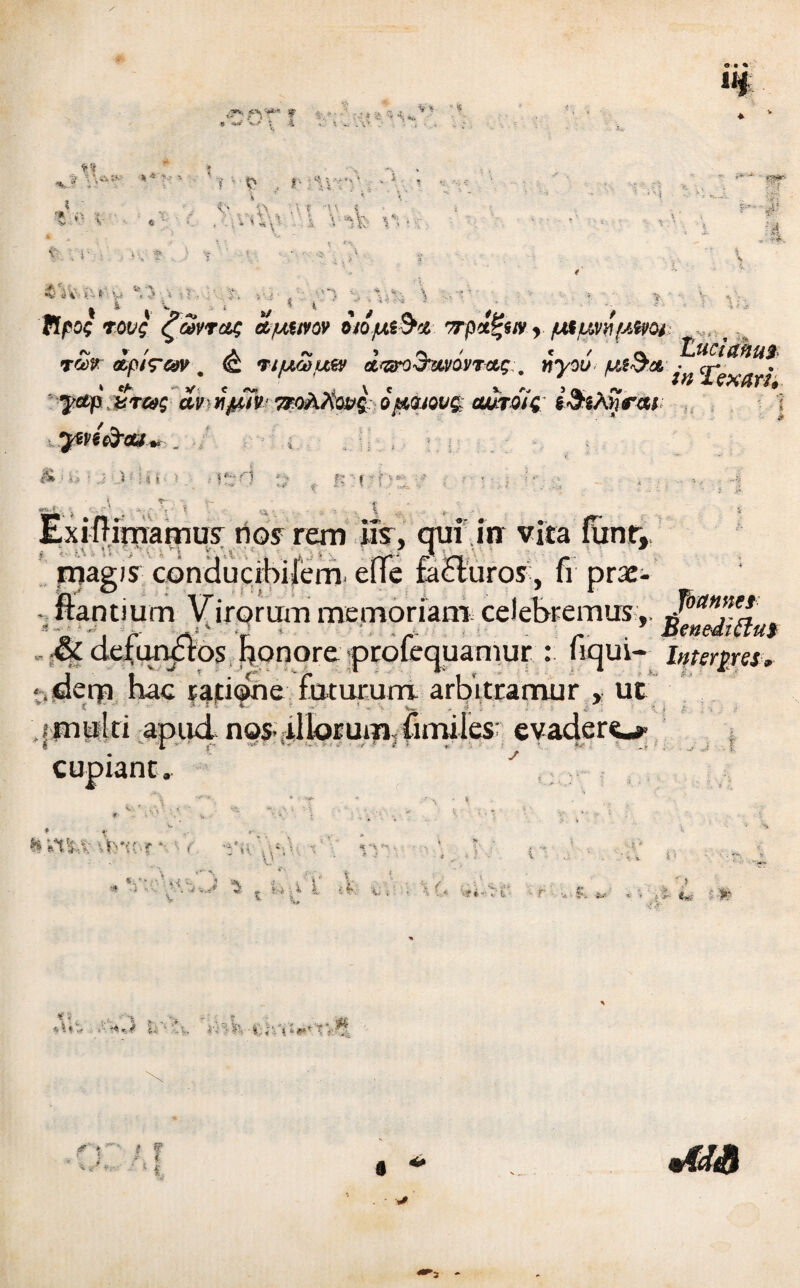 iij
Πρὸς τοὺς ζῶντας ἄμεινον οἰόμεθα πράξειν, μεμνημένοι
τῶν ἀρίϛων. & τιμῶμεν ἀποθανόντας. ἡγού μεθα
γὰρ ȣ̓́τως ἂν ἡμῖν πολλοὺς ὁμοίους αὐτοῖς ἐθελῆσαι
γενέσθαι.
Lucianus
in Texari.
Exiſtimamus nos rem iis, qui in vita ſunt,
magis conducibilem eſſe facturos, ſi præ-
ſtantium Virorum memoriam celebremus,
& defunctos honore proſequamur : ſiqui-
dem hac ratione futurum arbitramur, ut
multi apud nos illorum ſimiles evadere
cupiant.
Joannes
Benedictus
Interpres.
a
Ad